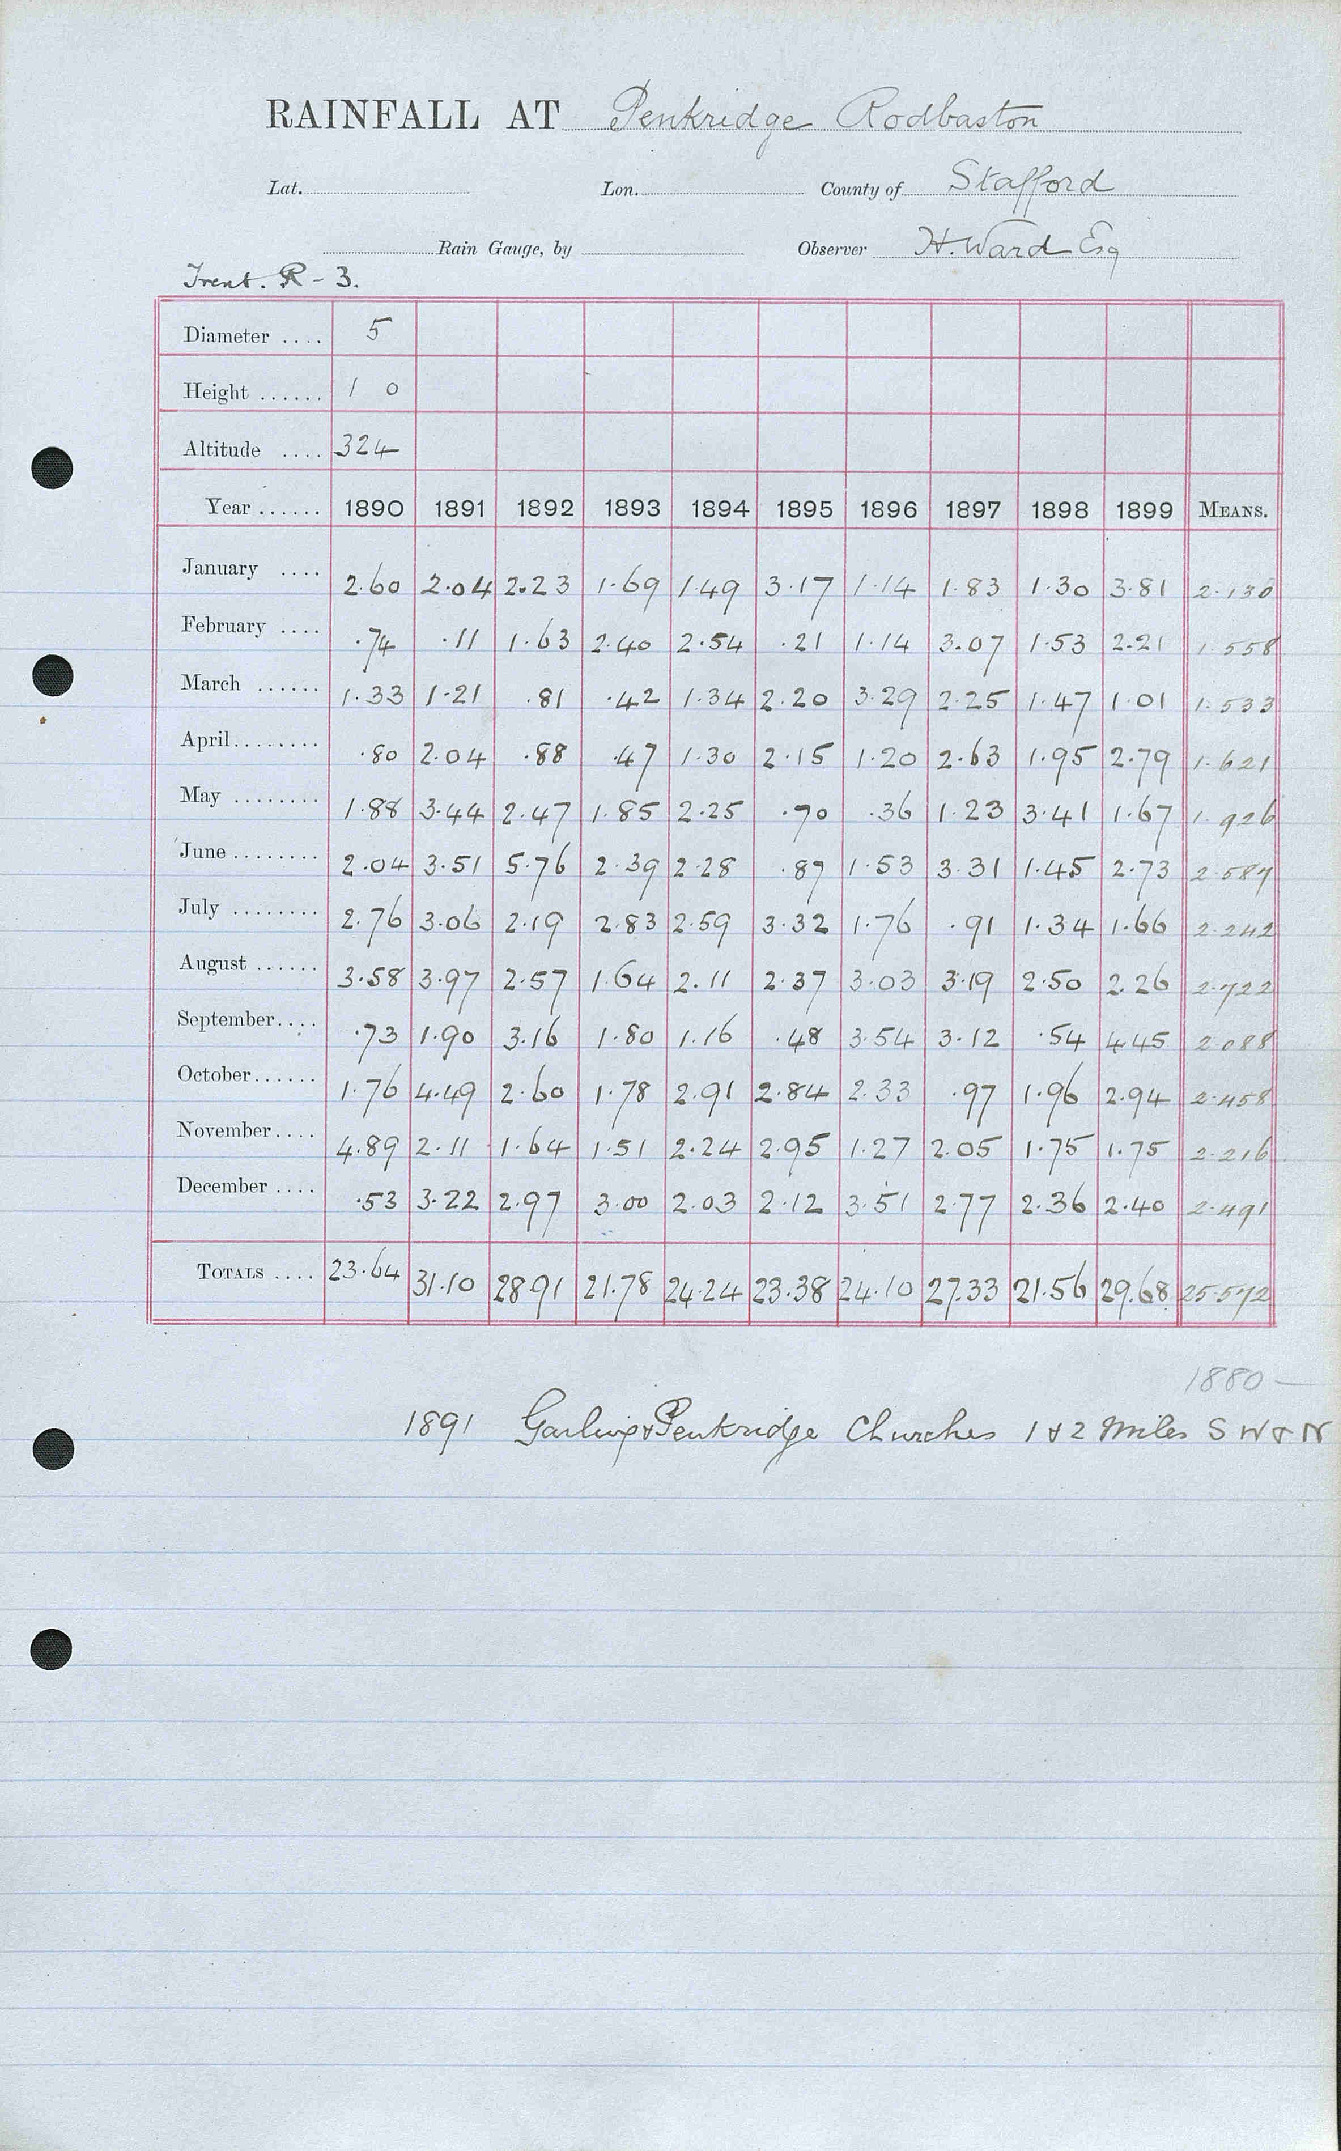 RAINFALL AT Penkridge Rodbaston
Lat. Lon. County of Stafford
Rain Gauge, by Observer H. Ward Esq
Trent. R - 3.
Diameter .... 5
Height ...... 1 0
Altitude .... 324
Year ...... 1890 1891 1892 1893 1894 1895 1896 1897 1898 1899 MEANS.
January .... 2.60 2.04 2.23 1.69 1.49 3.17 1.14 1.83 1.30 3.81 2.130
February .... .74 .11 1.63 2.40 2.54 .21 1.14 3.07 1.53 2.21 1.558
March ...... 1.33 1.21 .81 .42 1.34 2.20 3.29 2.25 1.47 1.01 1.533
April........ .80 2.04 .88 .47 1.30 2.15 1.20 2.63 1.95 2.79 1.621
May ........ 1.88 3.44 2.47 1.85 2.25 .70 .36 1.23 3.41 1.67 1.926
June........ 2.04 3.51 5.76 2.39 2.28 .87 1.53 3.31 1.45 2.73 2.587
July ........ 2.76 3.06 2.19 2.83 2.59 3.32 1.76 .91 1.34 1.66 2.242
August ...... 3.58 3.97 2.57 1.64 2.11 2.37 3.03 3.19 2.50 2.26 2.722
September.... .73 1.90 3.16 1.80 1.16 .48 3.54 3.12 .54 4.45 2.088
October...... 1.76 4.49 2.60 1.78 2.91 2.84 2.33 .97 1.96 2.94 2.458
November.... 4.89 2.11 1.64 1.51 2.24 2.95 1.27 2.05 1.75 1.75 2.216
December .... .53 3.22 2.97 3.00 2.03 2.12 3.51 2.77 2.36 2.40 2.491
TOTALS .... 23.64 31.10 28.91 21.78 24.24 23.38 24.10 27.33 21.56 29.68 25.572
1880 —
1891 & Penkridge Churches 1 & 2 Miles S W & N